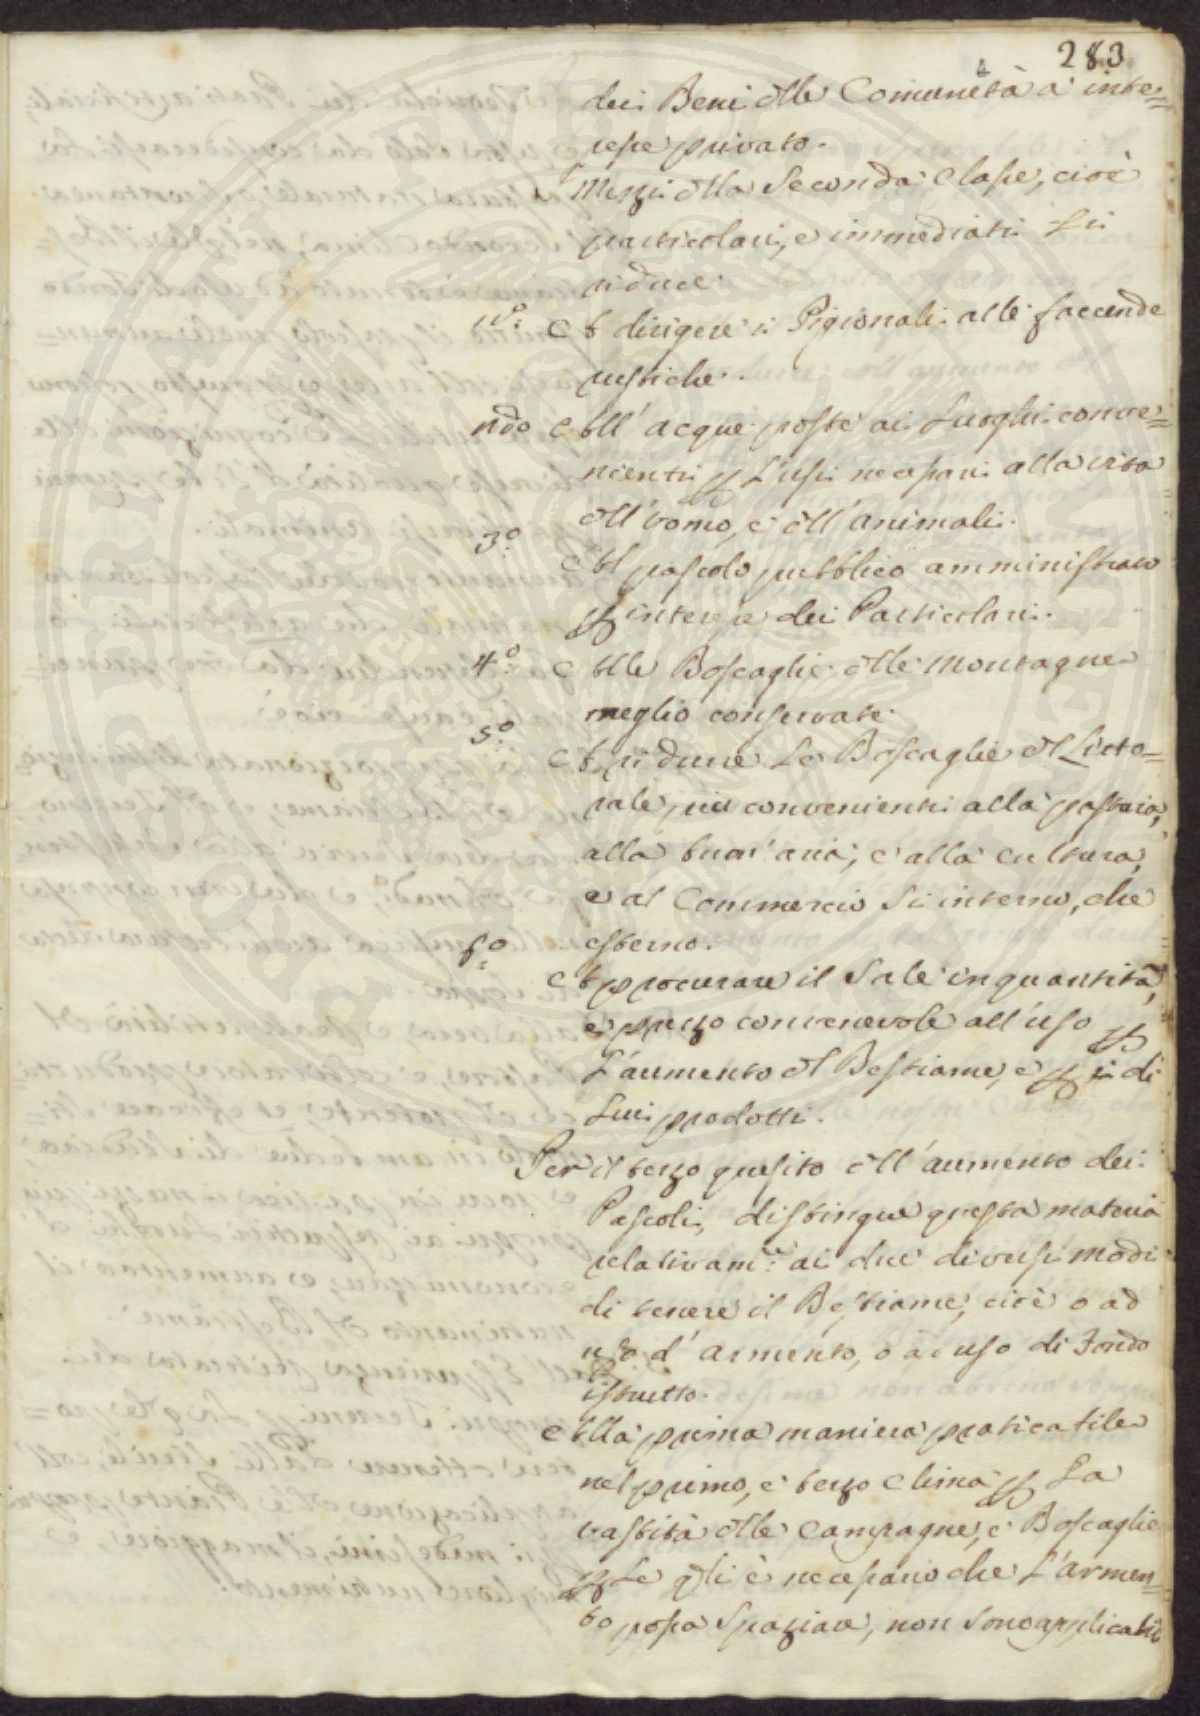 283
dei Beni dlle Comunità a inte=
resse privato.
Mezzi dlla Seconda Classe, cioè
particolari, e immediati li
riduce
1mo: A dirigere i Pigionali alle faccende
rustiche.
ndo All' acque poste ai Luoghi conve=
nienti p L'usi necessari alla vita
dll' uomo, e dll' animali.
3º: Al pascolo pubblico amministrato
p interesse dei Particolari.
4º: Alle Boscaglie dlle montagne
meglio conservate.
5º A ridurre Le Boscaglie dl Litto=
rale più convenienti alla pastura,
alla buon' aria, e alla cultura,
e al Commercio sì interno, che
esterno.
6º: A procurare il Sale in quantità,
e prezzo convenevole all' uso p
L'aumento dl Bestiame, e p i di
Lui prodotti.
Per il terzo quesito dll' aumento dei
Pascoli, distingue questa materia
relativamte: ai due diversi modi
di tenere il Bestiame, cioè o ad
uso d' armento, o ad uso di Fondo
istrutto.
Alla prima maniera praticabile
nel primo, e terzo Clima p La
vastità dlle Campagne, e Boscaglie
p Le qli è necessario che L'armen=
to possa Spaziare, non sono applicabili